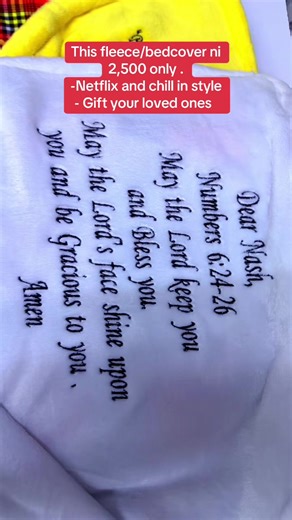 This fleece/bedcover ni
2,500 only .
-Netflix and chill in style
- Gift your loved ones
Dear Nash,
Numbers 6:24-26
May the Lord keep you
and Bless you.
May the Lord's face shine upon
you and be Gracious to you.
Amen